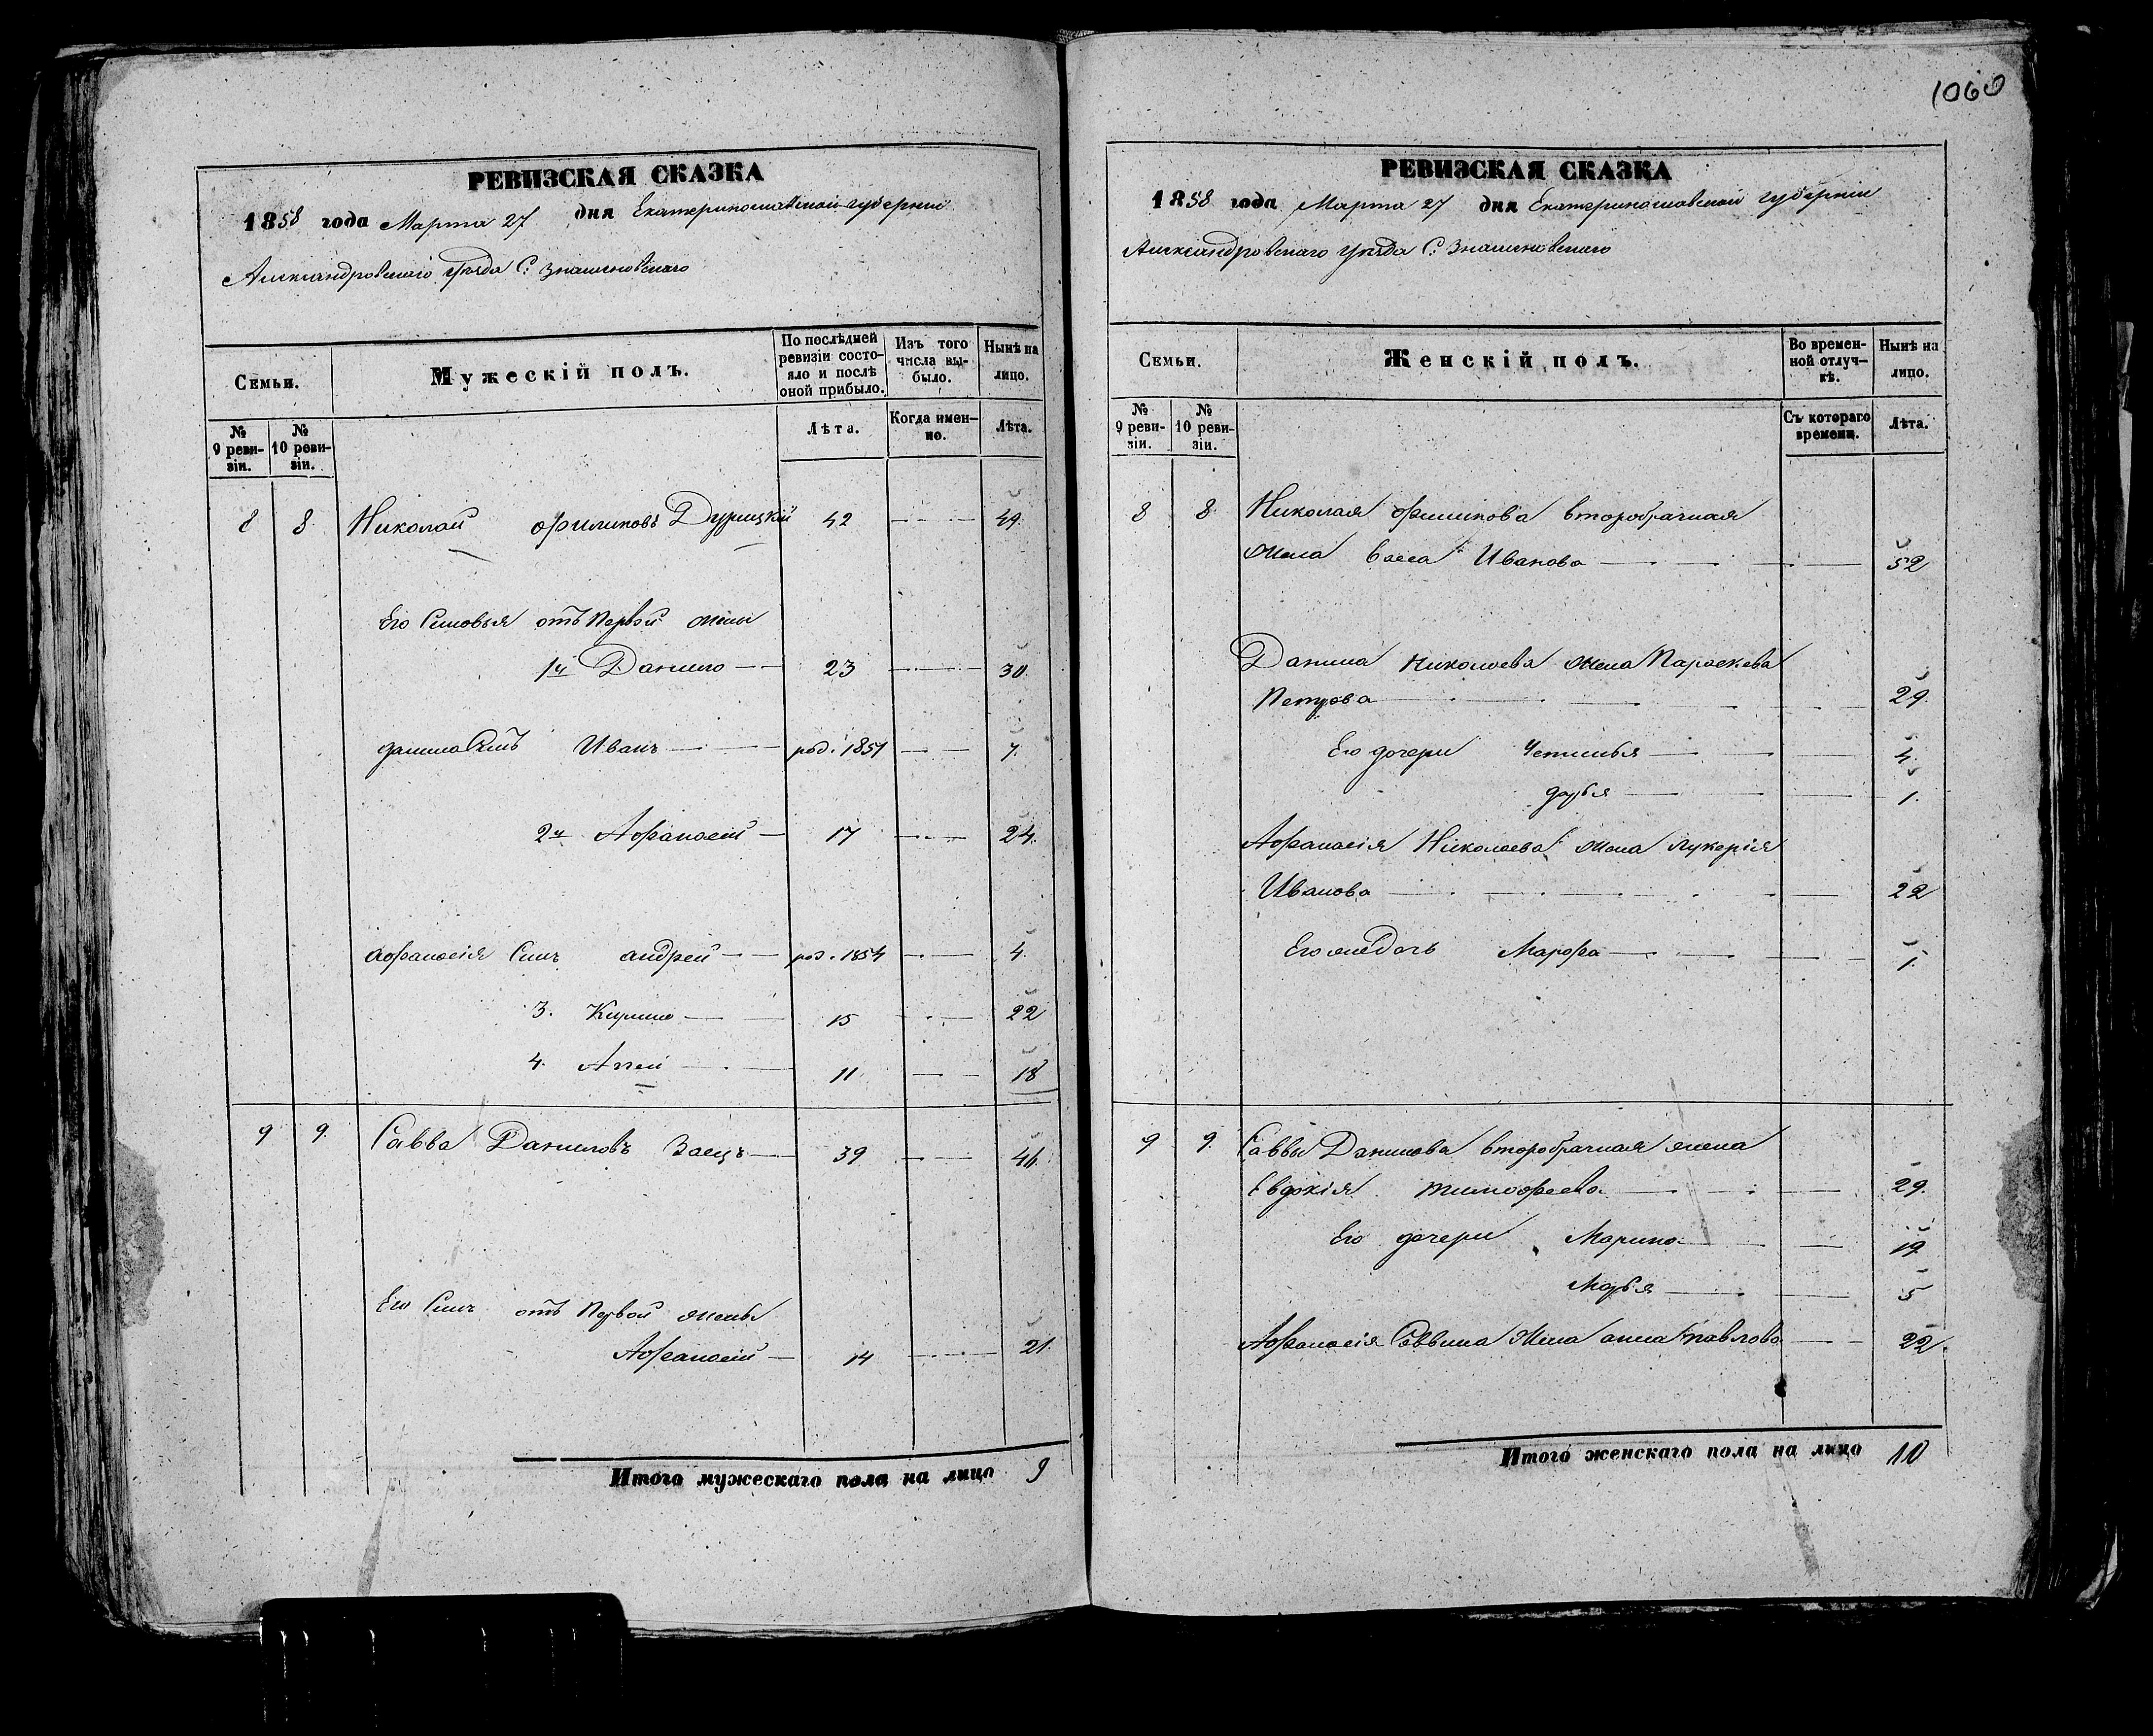 1060
РЕВИЗСКАЯ СКАЗКА
1858 года Марта 27 дня Екатеринославской губернии
Александровскаго уѣзда С: Знаменовскаго
Семьи.
Мужескій полъ.
По послѣдней ревизіи состояло и послѣ оной прибыло.
Изъ того числа выбыло.
Нынѣ на лицо.
№ 9 ревизіи.
№ 10 ревизіи.
Лѣта.
Когда именно.
Лѣта.
8 8 Николай Филиповъ 42 49.
Его Сыновья отъ Первой жены
1й Данило 23 30.
Данила Сынъ Иванъ род. 1851 7.
2й Афанасій 17 24.
Афанасія Сынъ Андрей род. 1854 4.
3. Кирило 15 22
4. Аггей 11 18
9 9. Савва Даниловъ Заецъ 39 46.
Его Сынъ отъ Первой жены
Афанасій 14 21.
Итого мужескаго пола на лицо 9
РЕВИЗСКАЯ СКАЗКА
1858 года Марта 27 дня Екатеринославской губерніи
Александровскаго уѣзда С: Знаменовскаго
Семьи.
Женскій полъ.
Во временной отлучкѣ.
Нынѣ на лицо.
№ 9 ревизіи.
№ 10 ревизіи.
Съ котораго времени.
Лѣта.
8 8 Николая Филипова второбрачная
жена Васса Иванова 52
Данила Николаева жена Параскева
Петрова 29.
Его дочери 4.
Дарья 1.
Афанасія Николаева жена Лукерія
Иванова 22
Его же Дочь Марфа 1.
9 9. Саввы Данилова второбрачная жена
Евдокія Тимофеева 29.
Его дочери Марина 19
Марья 5
Афанасія Саввина Жена Анна Павлова 22.
Итого женскаго пола на лицо 10